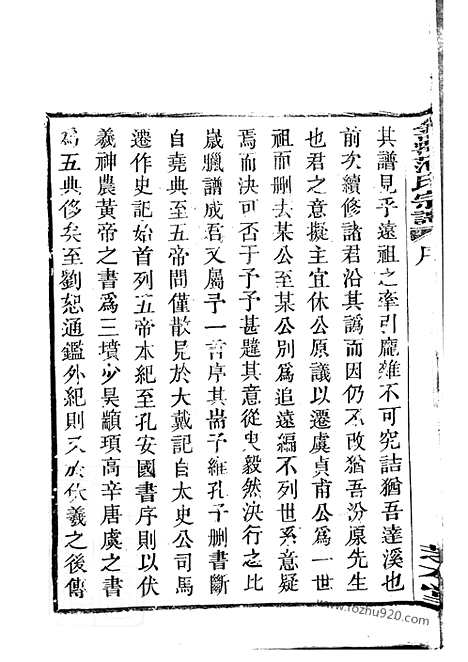 其譜見乎遠祖之牽引龐雜不可究詰猶吾逹溪也
前次續修諸君沿其譌而因仍不改猶吾汾原先生
也君之意擬主宜休公原議以遷虞貞甫公爲一世
祖而刪去某公至某公別爲追遠編不列世系意疑
焉而決可否于予予甚韙其意從臾毅然決行之比
歲臘譜成君又屬予一言序其耑予維孔子刪書斷
自堯典至五帝問僅散見於大戴記自太史公司馬
遷作史記始首列五帝本紀至孔安國書序則以伏
羲神農黃帝之書爲三墳少昊顓頊高辛唐虞之書
爲五典侈矣至劉恕通鑑外紀則又於伏羲之後傳
范氏宗譜
序
www.fozhu920.com